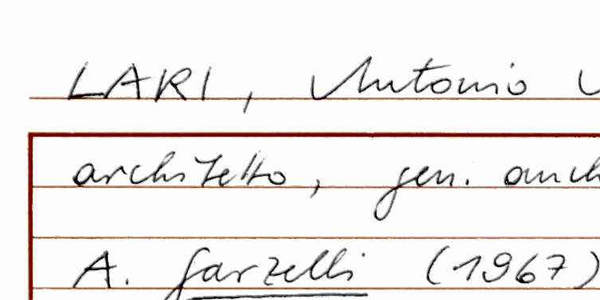 LARI, Antonio
architetto, gen. auch
A. Garzelli (1967)